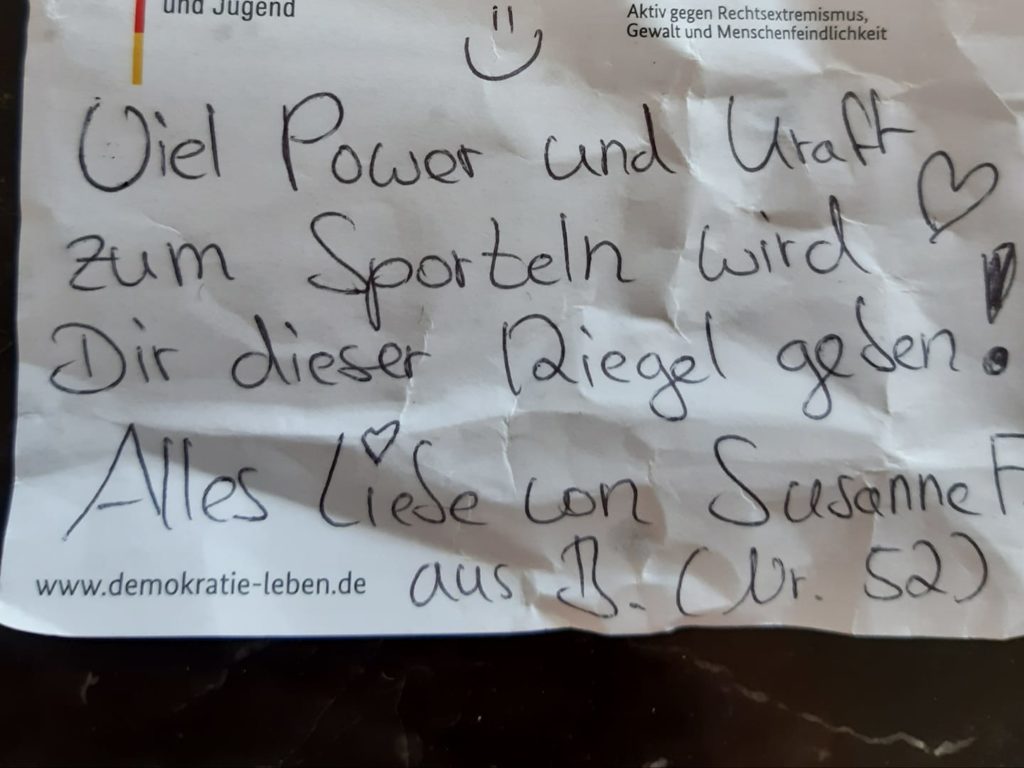 und Jugend
Aktiv gegen Rechtsextremismus,
Gewalt und Menschenfeindlichkeit
Viel Power und Kraft
zum Sporteln wird
Dir dieser Riegel geben!
Alles Liebe von Susanne F
aus B. (Nr. 52)
www.demokratie-leben.de